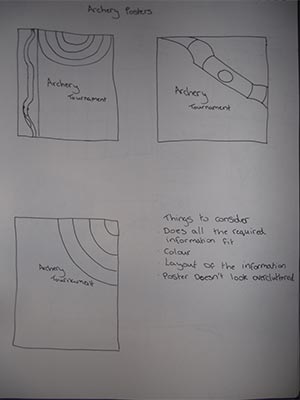 Archery Posters
Archery
Tournament
Archery
Tournament
Archery
Tournament
Things to consider
Does all the required
information fit
Colour
Layout of the information
Poster Doesn't look overcluttered